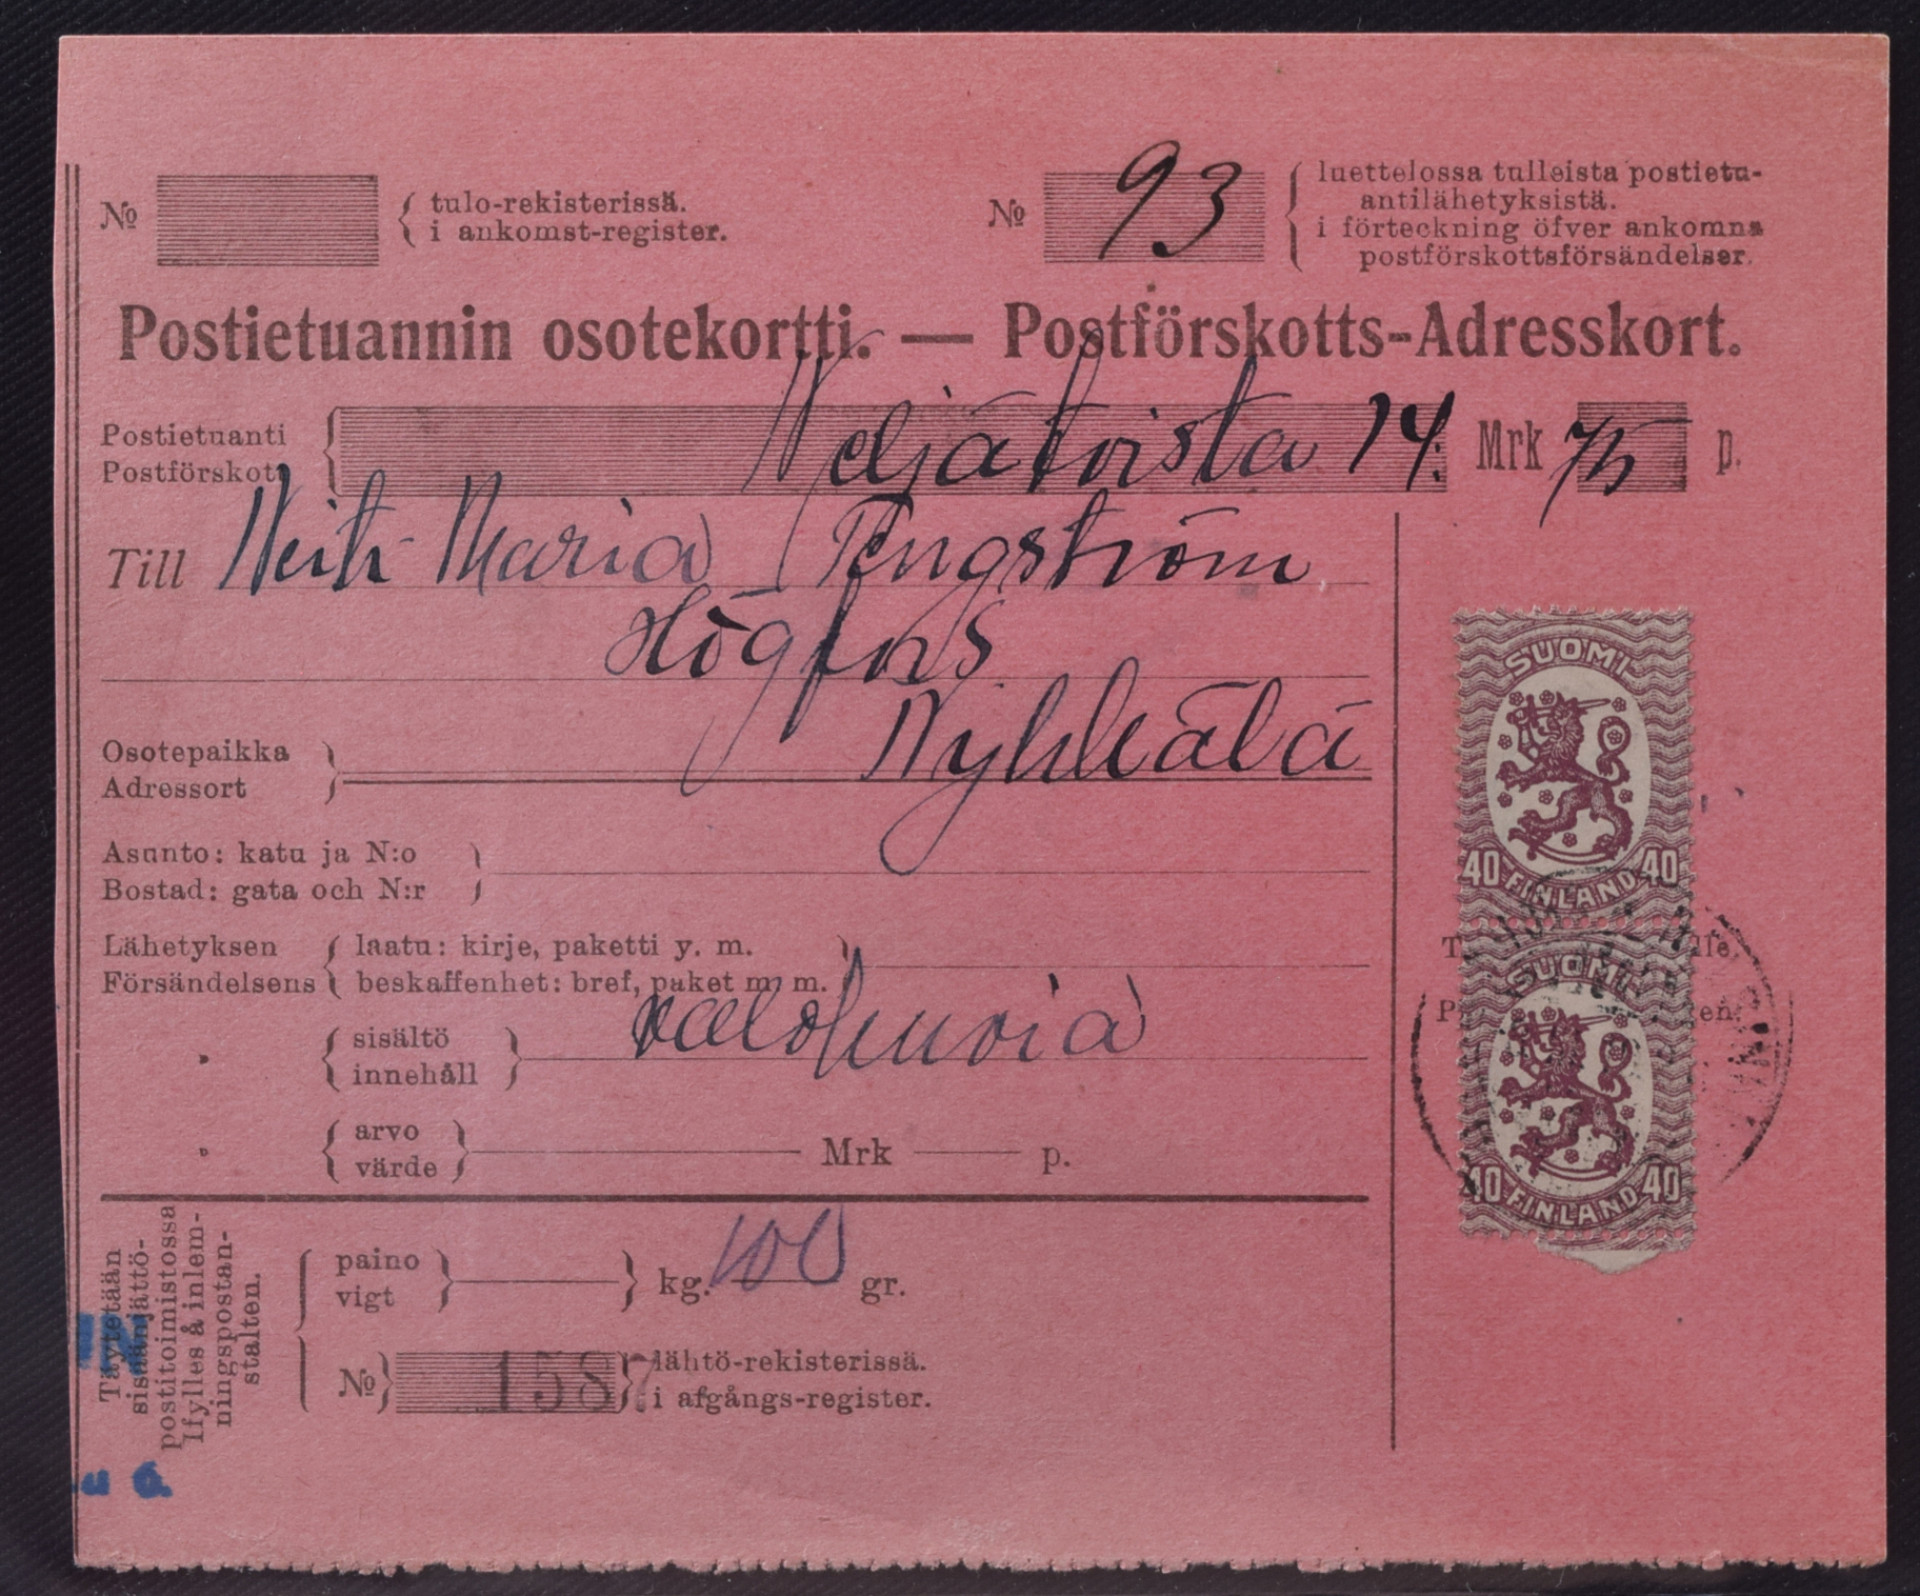 № { tulo-rekisterissä.
i ankomst-register.
№ 93 { luettelossa tulleista postietu-
antilähetyksistä.
i förteckning öfver ankomna
postförskottsförsändelser.
Postietuannin osotekortti. — Postförskotts-Adresskort.
Postietuanti
Postförskott
Neljätoista 14: Mrk 75 p.
Till Neiti Maria Engström
Högfors
Nyhkälä
Osotepaikka
Adressort
Asunto: katu ja N:o
Bostad: gata och N:r
Lähetyksen { laatu: kirje, paketti y. m. }
Försändelsens { beskaffenhet: bref, paket m m. }
valokuvia
" { sisältö }
innehåll
" { arvo } Mrk p.
värde
Täytetään
sisäänjättö-
postitoimistossa
Ifylles å inlem-
ningspostan-
stalten.
paino
vigt } kg. 100 gr.
№ 1587 lähtö-rekisterissä.
i afgångs-register.
SUOMI
40 FINLAND 40
SUOMI
40 FINLAND 40